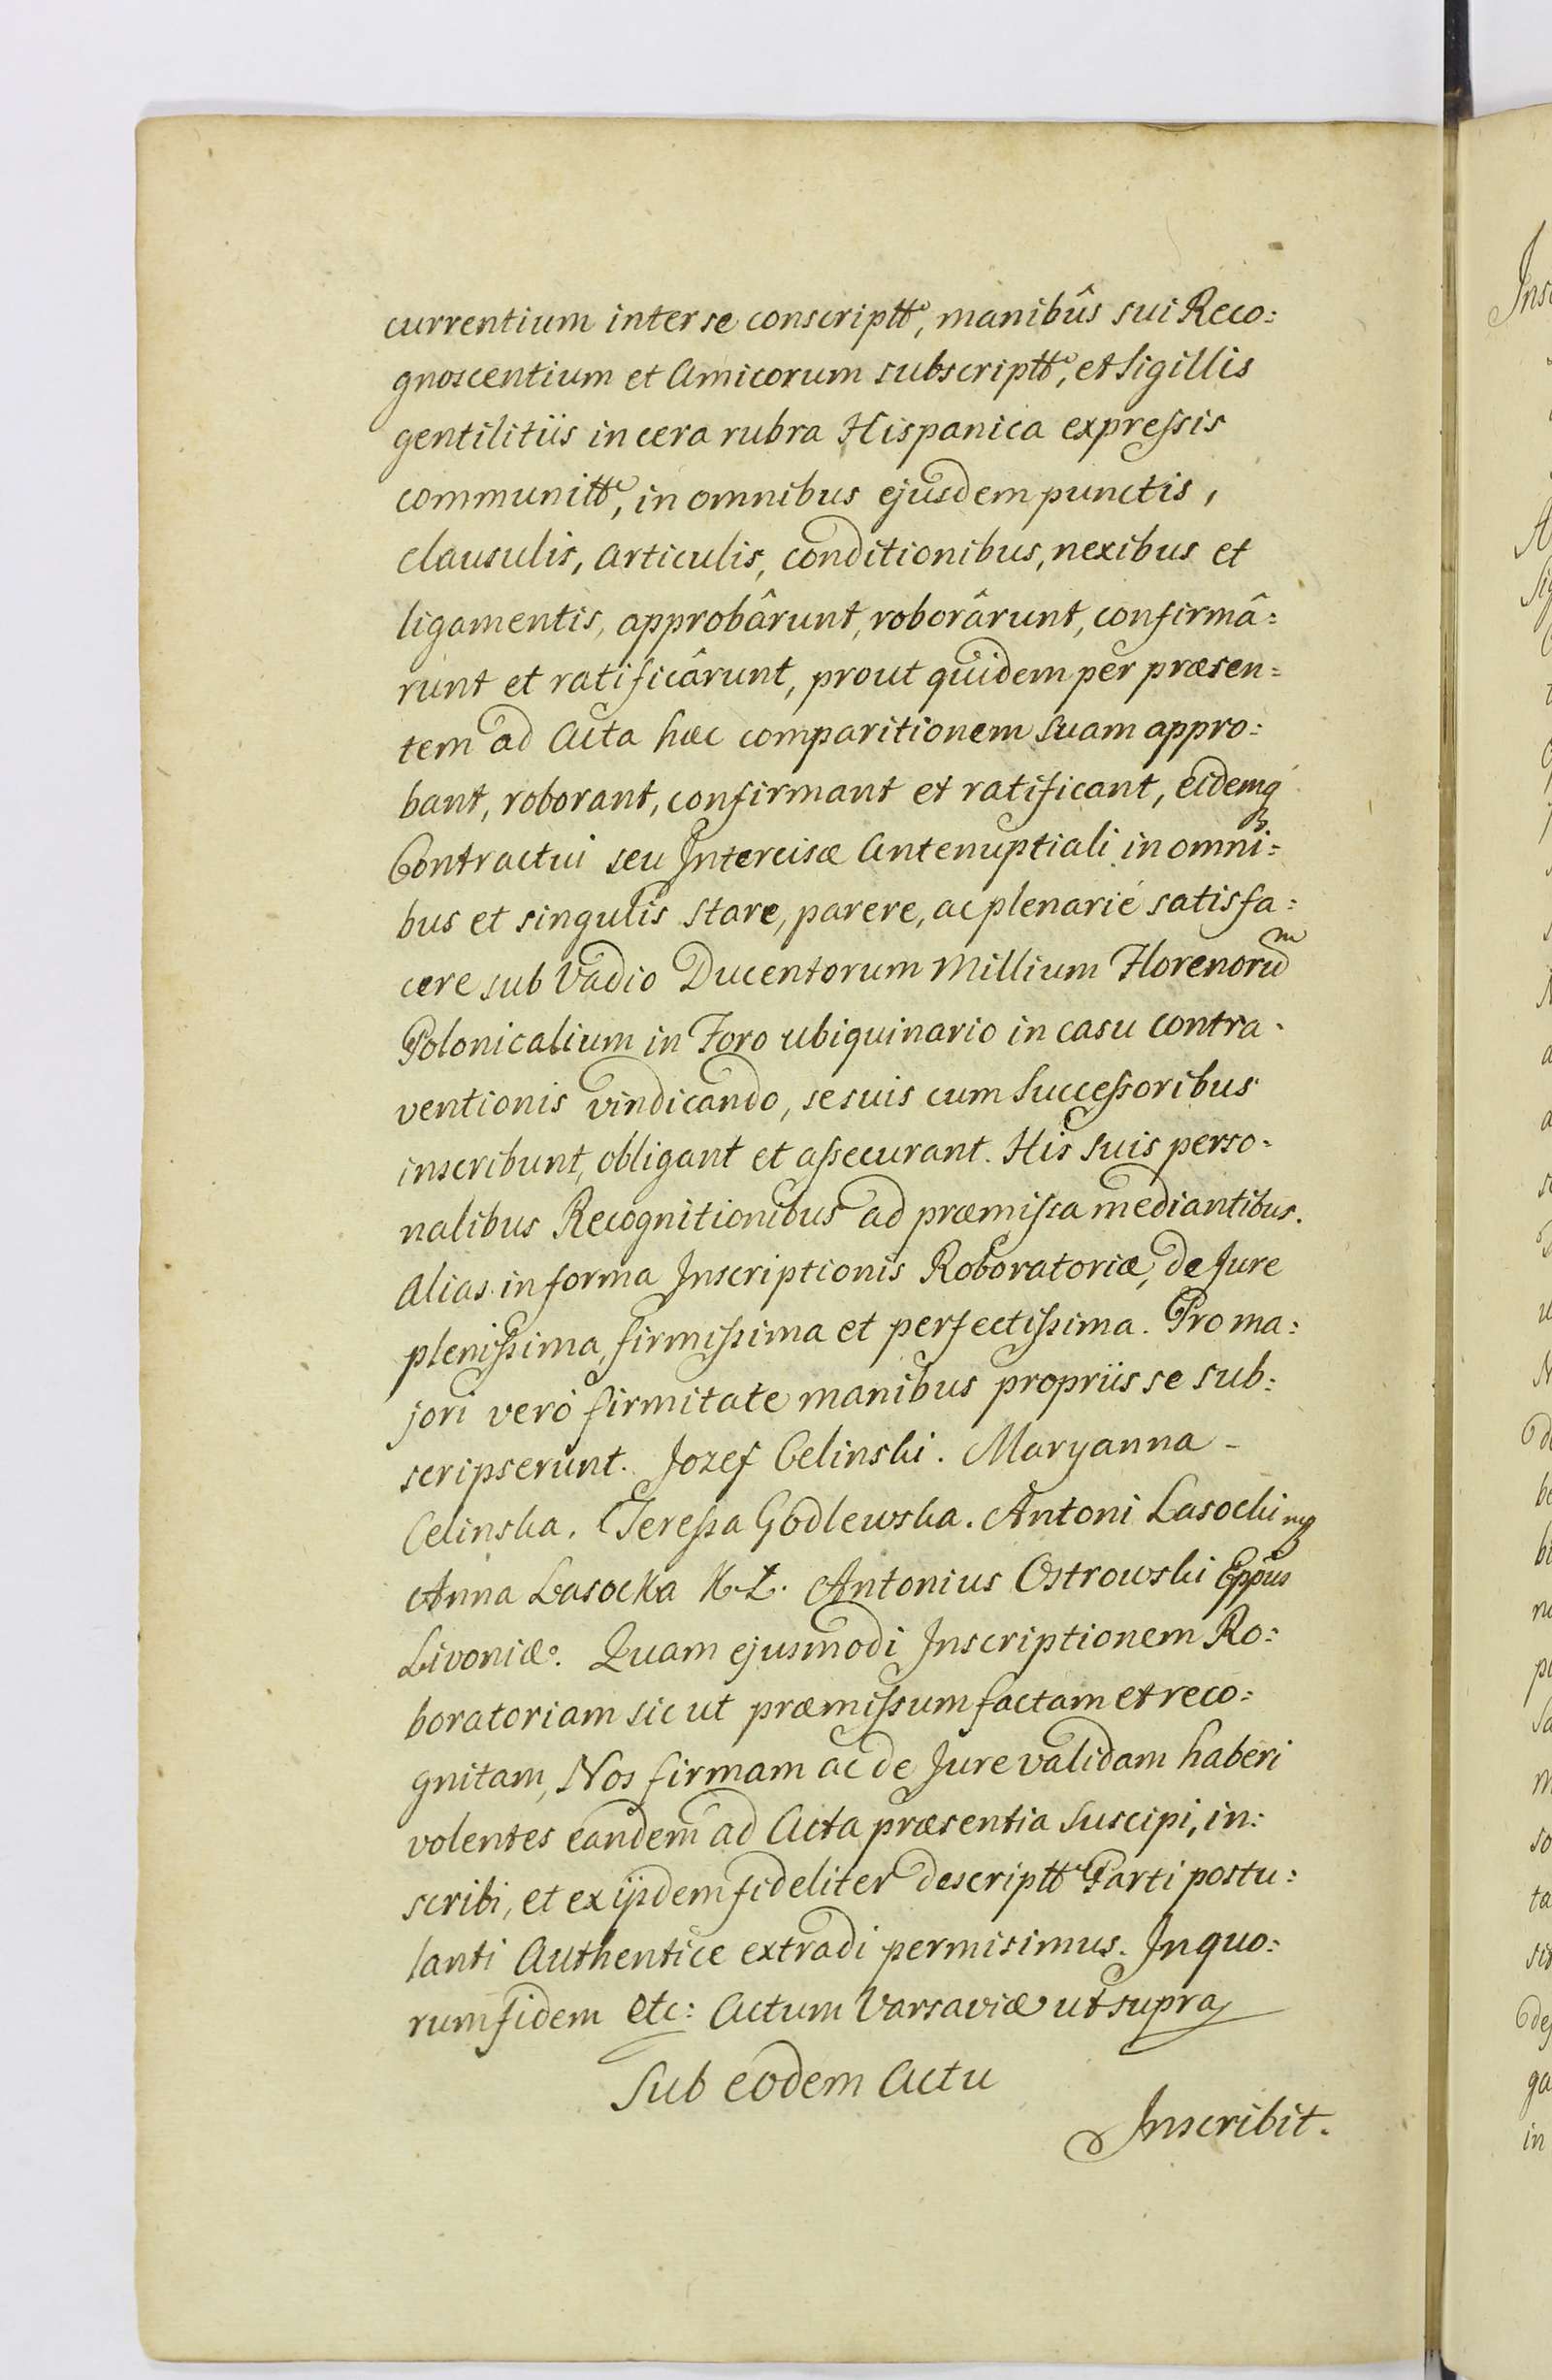 currentium inter se conscriptt, manibûs sui Reco:
gnoscentium et Amicorum subscriptt, et Sigillis
gentilitiis in cera rubra Hispanica expressis
communitt, in omnibus ejusdem punctis,
clausulis, articulis, conditionibus, nexibus et
ligamentis, approbârunt, roborârunt, confirmâ:
runt et ratificârunt, prout quidem per præsen=
tem ad Acta hæc comparitionem suam appro:
bant, roborant, confirmant et ratificant, eidemq
Contractui seu Intercisæ Antenuptiali in omni:
bus et singulis stare, parere, ac plenarié satisfa:
cere sub Vadio Ducentorum Millium Florenorum
Polonicalium in Foro ubiquinario in casu contra-
ventionis vindicando, se suis cum Successoribus
inscribunt, obligant et assecurant. His suis perso-
nalibus Recognitionibus ad præmissa mediantibus.
Alias in forma Inscriptionis Roboratoriæ, de Jure
plenissima, firmissima et perfectissima. Pro ma:
jori veró firmitate manibus propriis se sub:
scripserunt. Jozef Celinski. Maryanna -
Celinska. Teressa Godlewska. Antoni Lasocki mp
Anna Lasocka K. Ł. Antonius Ostrowski Eppus
Livoniæ. Quam ejusmodi Inscriptionem Ro:
boratoriam sic ut præmissum factam et reco:
gnitam, Nos firmam ac de Jure validam haberi
volentes eandem ad Acta præsentia suscipi, in:
scribi, et ex ijsdem fideliter descriptt Parti postu:
lanti Authentice extradi permisimus. In quo:
rum fidem etc: Actum Varsaviæ ut supra
Sub eodem Actu
Inscribit.